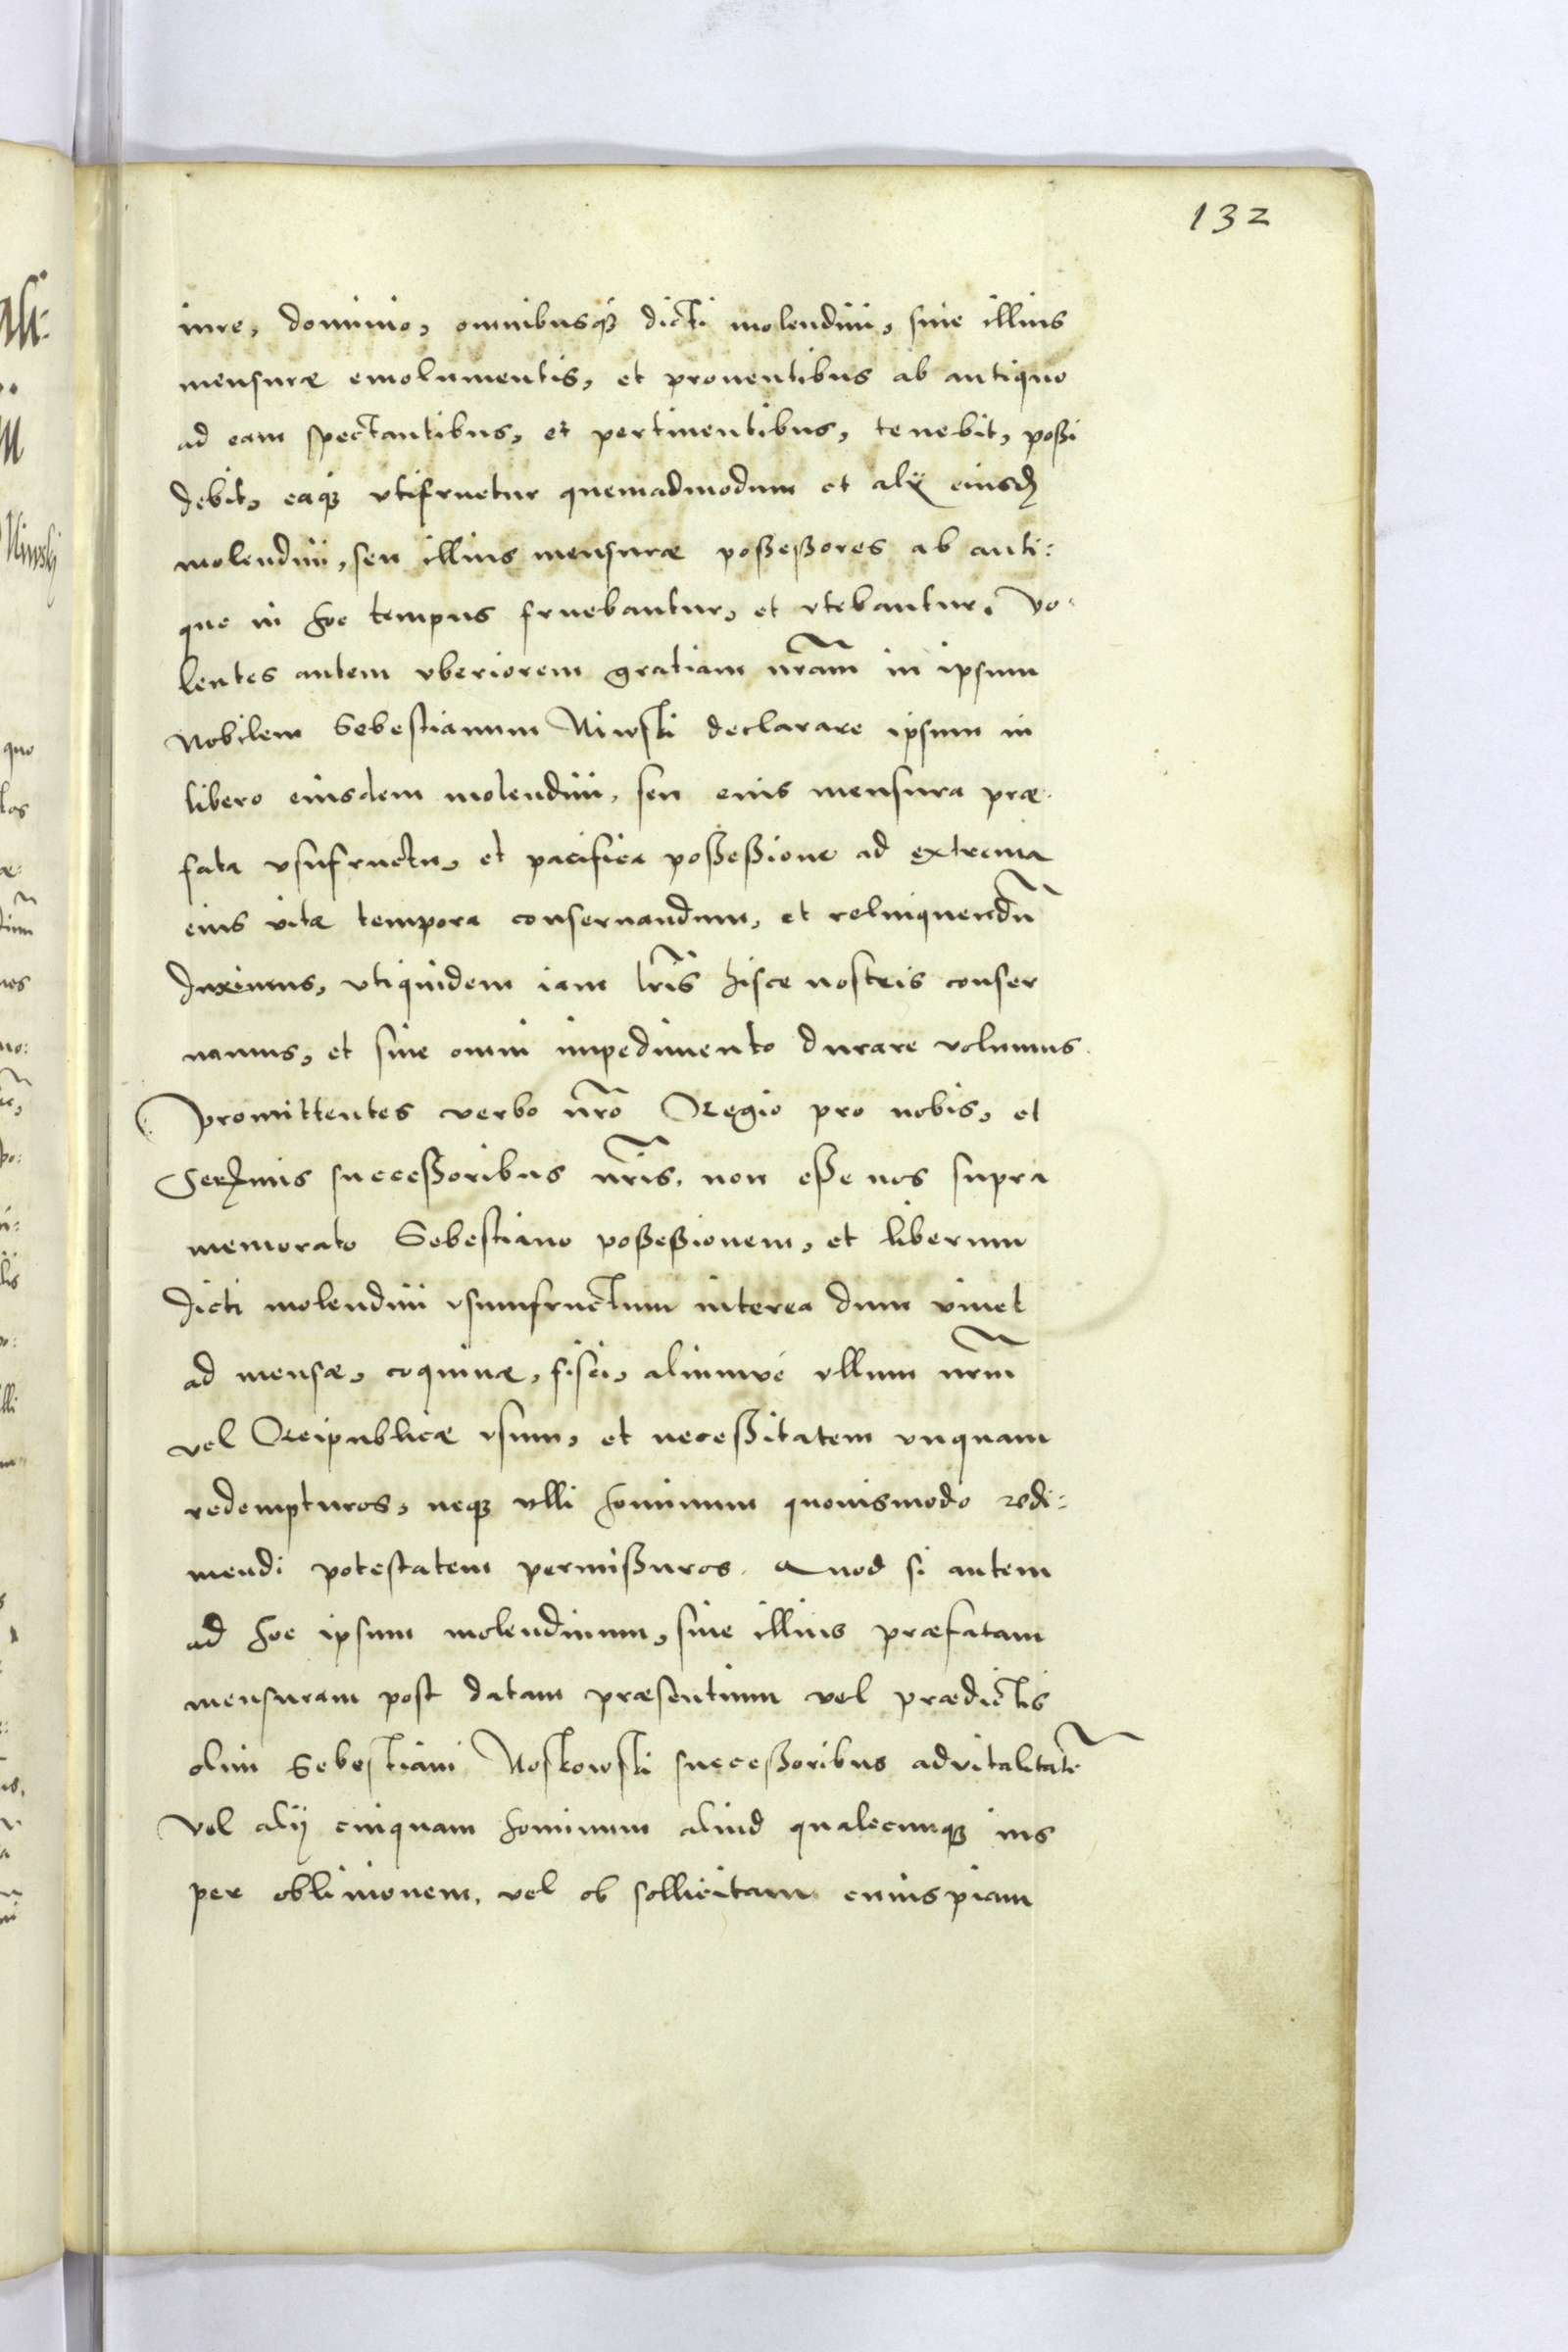 132
iure, dominio, omnibusq&#x301; dicti molendini, siue illius
mensuræ emolumentis, et prouentibus ab antiquo
ad eam spectantibus, et pertinentibus, tenebit, poßi
debit, eaq utifruetur quemadmodum et alij eiusd
molendini, seu illius mensuræ poßeßores ab anti:
quo in hoc tempus fruebantur, et vtebantur. Vo-
lentes autem vberiorem gratiam nr̃am in ipsum
Nobilem Sebestianum Niwski declarare ipsum in
libero eiusdem molendini, seu eius mensura præ-
fata vsufructu, et pacifica poßeßione ad extrema
eius vitæ tempora conseruandum, et relinquendũ
duximus, vtiquidem iam lr̃is hisce nostris conser
uamus, et sine omni impedimento durare volumus.
Promittentes verbo nr̃o Regio pro nobis, et
Serenmis succeßoribus nr̃is, non eße nos supra
memorato Sebestiano poßeßionem, et liberum
dicti molendini vsumfructum interea dum viuet
ad mensæ, coquinæ, fisci, aliumvé vllum nr̃m
vel Reipublicæ vsum, et neceßitatem vnquam
redempturos, neq vlli hominum quouismodo redi:
mendi potestatem permißuros. Quod si autem
ad hoc ipsum molendinum, siue illius præfatam
mensuram post datam præsentium vel prædictis
olim Sebestiani Noskowski succeßoribus advitalitatẽ
vel alij cuiquam hominum aliud qualecunq ius
per obliuionem, vel ob sollicitam cuiuspiam